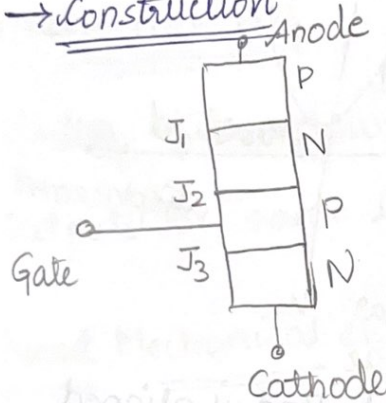 → Construction
Anode
P
J₁
N
J₂
P
Gate
J₃
N
Cathode